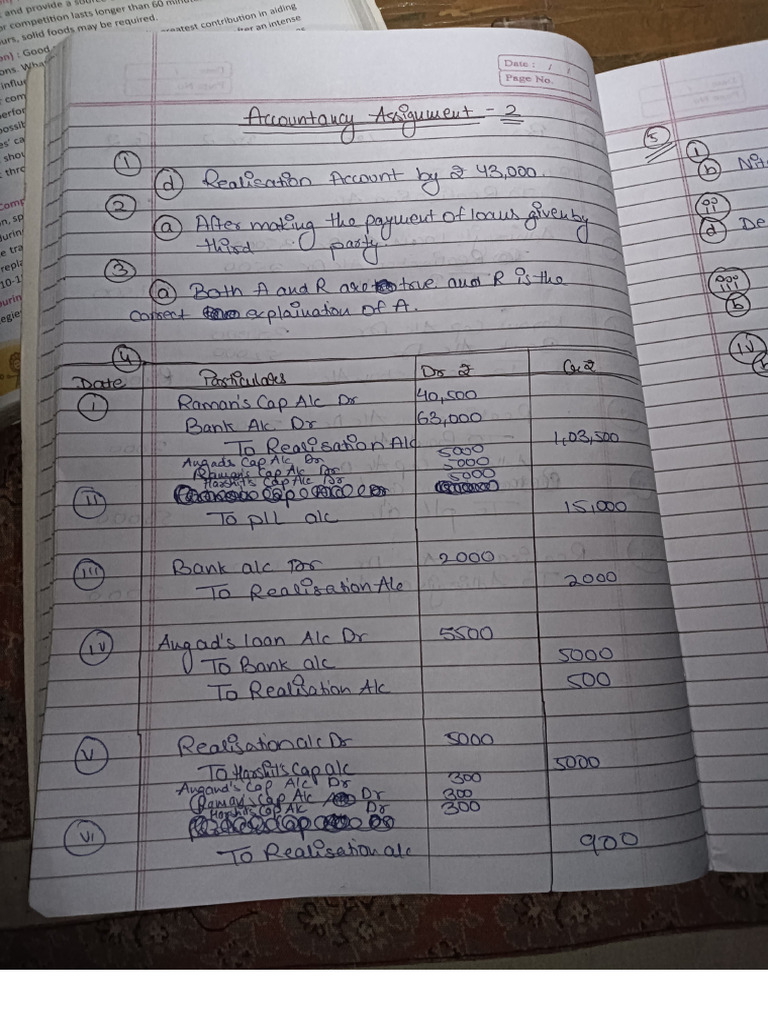 and provide a sour
or competition lasts longer than 60 minu
urs, solid foods may be required.
eatest contribution in aiding
ter an intense
: Good
Date : / /
Page No.
Accountancy Assignment - 2
① ⓓ Realisation Account by ₹ 43,000.
② ⓐ After making the payment of loans given by
third party.
③ ⓐ Both A and R are true and R is the
correct explaination of A.
④
Date Particulars Dr ₹ Cr ₹
(i) Raman's Cap A/c Dr 40,500
Bank A/c Dr 63,000
To Realisation A/c 1,03,500
Angad's Cap A/c Dr 5000
Raman's Cap A/c Dr 5000
Harshit's Cap A/c Dr 5000
(ii) To p/L a/c 15,000
(iii) Bank a/c Dr 2000
To Realisation A/c 2000
(iv) Angad's loan A/c Dr 5500
To Bank a/c 5000
To Realisation A/c 500
(v) Realisation a/c Dr 5000
To Harshit's Cap a/c 5000
Angand's Cap A/c Dr 300
Raman's Cap A/c Dr 300
Harshit's Cap A/c Dr 300
(vi) To Realisation a/c 900
⑤ (i)
ⓑ Nit
(ii)
ⓓ De
(iii)
ⓑ
(iv)